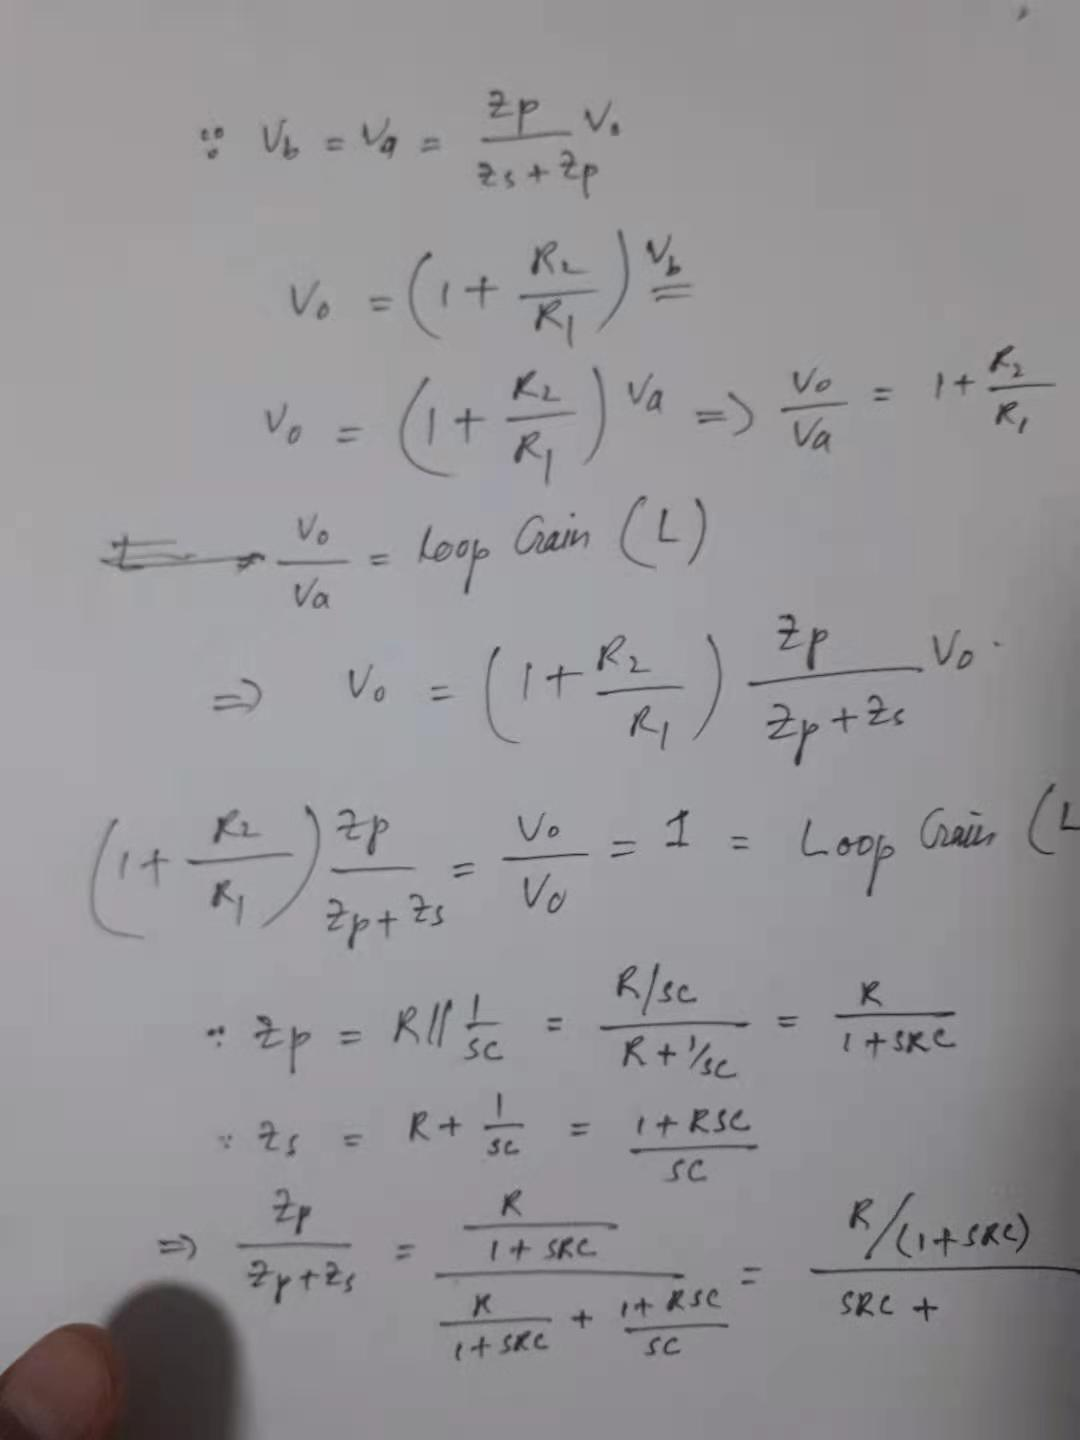 ∵ Vb = Va = Zp/(Zs + Zp) Vo
Vo = (1 + R2/R1) Vb
Vo = (1 + R2/R1) Va => Vo/Va = 1 + R2/R1
Vo/Va = Loop Gain (L)
=> Vo = (1 + R2/R1) Zp/(Zp + Zs) Vo
(1 + R2/R1) Zp/(Zp + Zs) = Vo/Vo = 1 = Loop Gain (L
∵ Zp = R || 1/SC = (R/SC)/(R + 1/SC) = R/(1 + SRC)
∵ Zs = R + 1/SC = (1 + RSC)/SC
=> Zp/(Zp + Zs) = (R/(1 + SRC))/(R/(1 + SRC) + (1 + RSC)/SC) = R/(1 + SRC)/SRC +